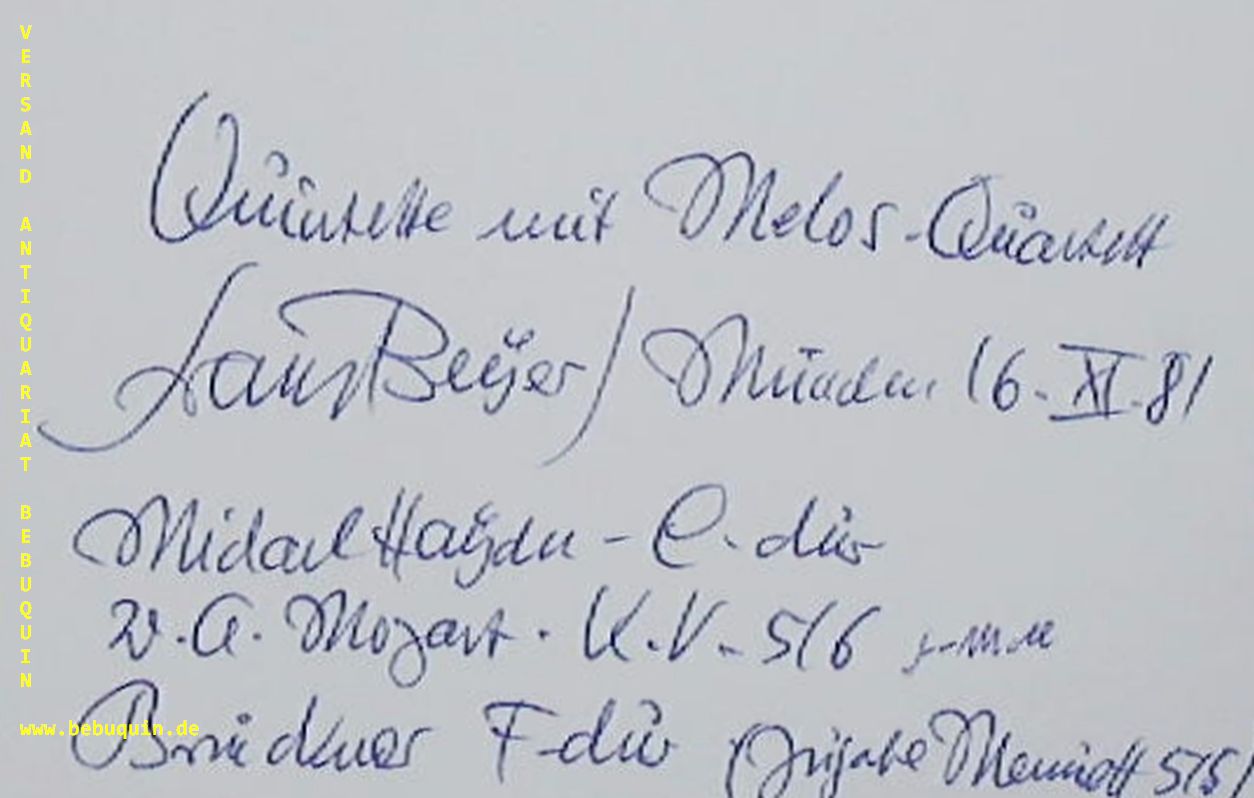 VERSAND ANTIQUARIAT BEBUQUIN
www.bebuquin.de
Quintette mit Melos-Quartett
Franz Beyer / München 16. XI. 81
Michael Haydn - C-dur
W. A. Mozart. K.V. 516 g-moll
Bruckner F-dur (Zugabe Menuett 515)